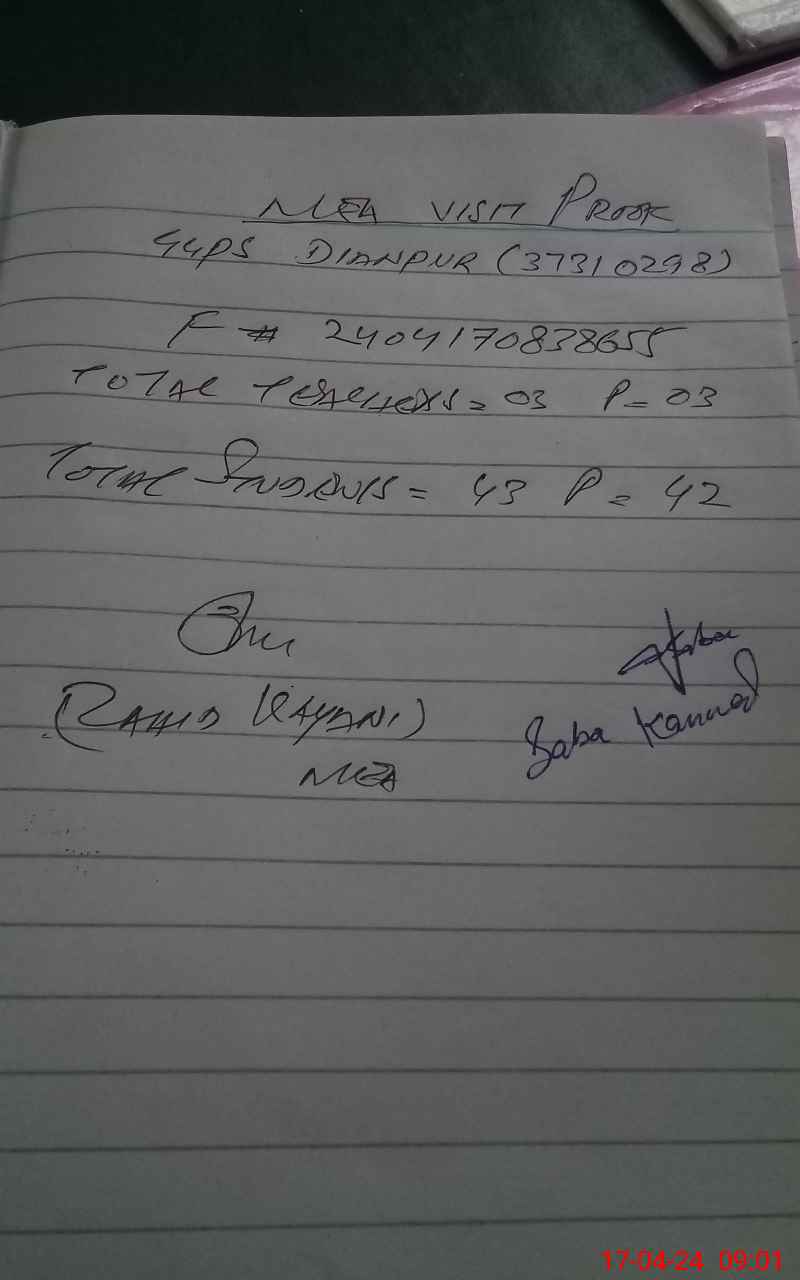 MEA VISIT PROOF
GGPS DIANPUR (37310298)
F # 2404170838655
TOTAL TEACHERS = 03 P = 03
TOTAL STUDENTS = 43 P = 42
KAYANI)
MEA
17-04-24 09:01